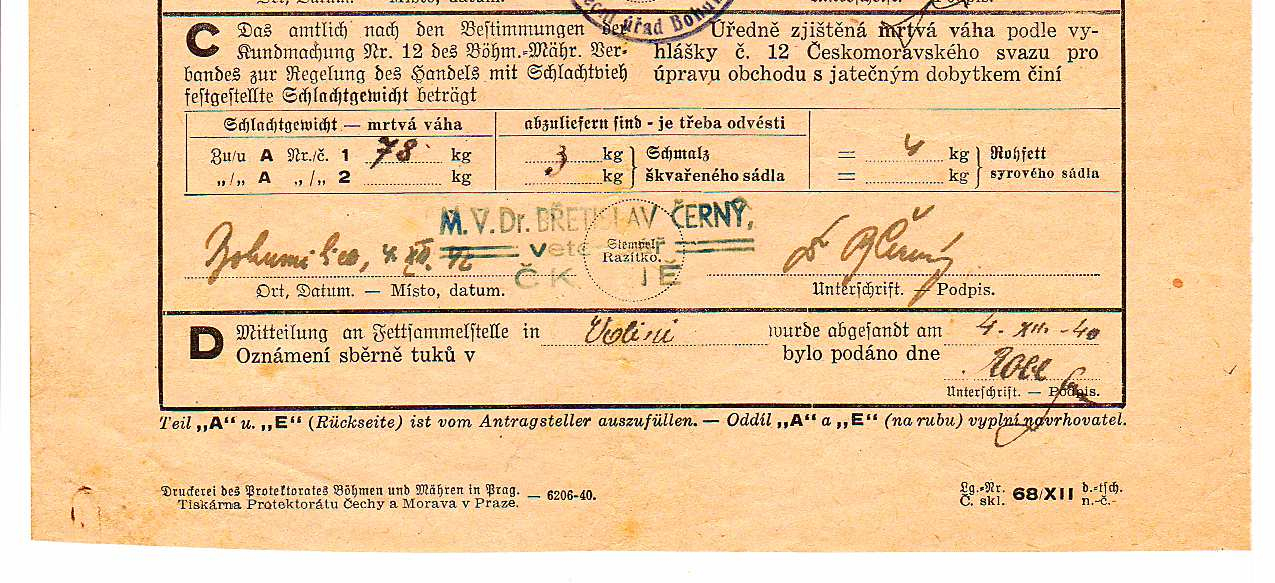 Ort, Datum. Místo, datum.
Obecní úřad Bohu
C Das amtlich nach den Bestimmungen der
Kundmachung Nr. 12 des Böhm.-Mähr. Ver-
bandes zur Regelung des Handels mit Schlachtvieh
festgestellte Schlachtgewicht beträgt
Úředně zjištěná mrtvá váha podle vy-
hlášky č. 12 Českomoravského svazu pro
úpravu obchodu s jatečným dobytkem činí
Schlachtgewicht — mrtvá váha
abzuliefern sind - je třeba odvésti
Zu/u A Nr./č. 1 78 kg
„/„ A „/„ 2 kg
3 kg } Schmalz
kg } škvařeného sádla
= 4 kg } Rohfett
= kg } syrového sádla
M.V.Dr. BŘETISLAV ČERNÝ,
Stempel.
Razítko.
Dr BČerný
Ort, Datum. — Místo, datum.
Unterschrift. — Podpis.
D Mitteilung an Fettsammelstelle in Volini wurde abgesandt am 4. XII. - 40
Oznámení sběrně tuků v bylo podáno dne
Unterschrift. — Podpis.
Teil „A“ u. „E“ (Rückseite) ist vom Antragsteller auszufüllen. — Oddíl „A“ a „E“ (na rubu) vyplní navrhovatel.
Druckerei des Protektorates Böhmen und Mähren in Prag. — 6206-40.
Tiskárna Protektorátu Čechy a Morava v Praze.
Lg.-Nr. 68/XII d.-tsch.
Č. skl. n.-č.-